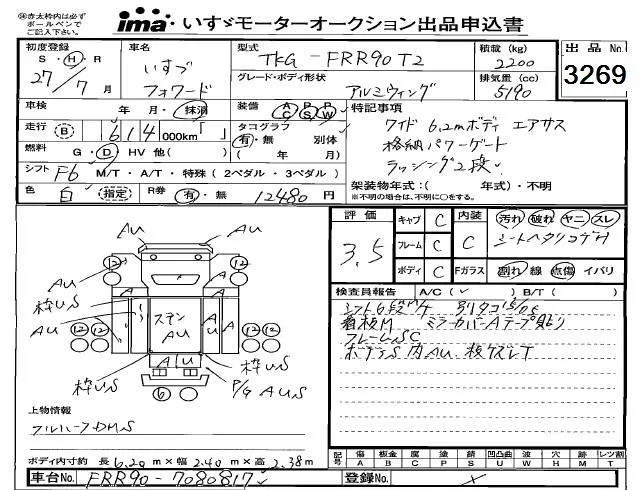 ㊟赤太枠内は必ず
ボールペンで
ご記入下さい。
ima・いすゞモーターオークション出品申込書
初度登録
S・H・R
27年7月
車名
いすゞ
フォワード
型式
TKG-FRR90T2
グレード・ボディ形状
アルミウィング
積載(kg)
2200
排気量(cc)
5190
出品No.
3269
車検 年・月・抹消
装備 AC PS PW
走行 B 614 000km「 」
タコグラフ
有・無 別体
( 年 月)
燃料 G・D・HV 他( )
シフト F6 M/T・A/T・特殊(2ペダル・3ペダル)
色 白 指定 R券 有・無 12480円
特記事項
ワイド 6.2mボディ エアサス
格納パワーゲート
ラッシング2段
架装物年式:( 年式)・不明
※不明の場合は、不明に○をする。
評価
3.5
キャブ C
フレーム C
ボディ C
内装 C
Fガラス
汚れ 破れ ヤニ スレ
シートヘタリコゲH
割れ 線 点傷 イバリ
検査員報告 A/C( ) B/T( )
看板M ミラーカバーAテープ貼り
フレームSC
AU
AU
12
12
AU
A
A
枠US
AU
ステン
AU
AU
12
12
12
12
AU
A
枠US
枠US
P/G AUS
6
上物情報
ボディ内寸約 長6.20m×幅2.40m×高2.38m
記号 傷A 板金B 腐C ポンプP 塗S 錆U 凹凸曲W 波 穴H 跡M レツ割T
車台No. FRR90-7080817
登録No.